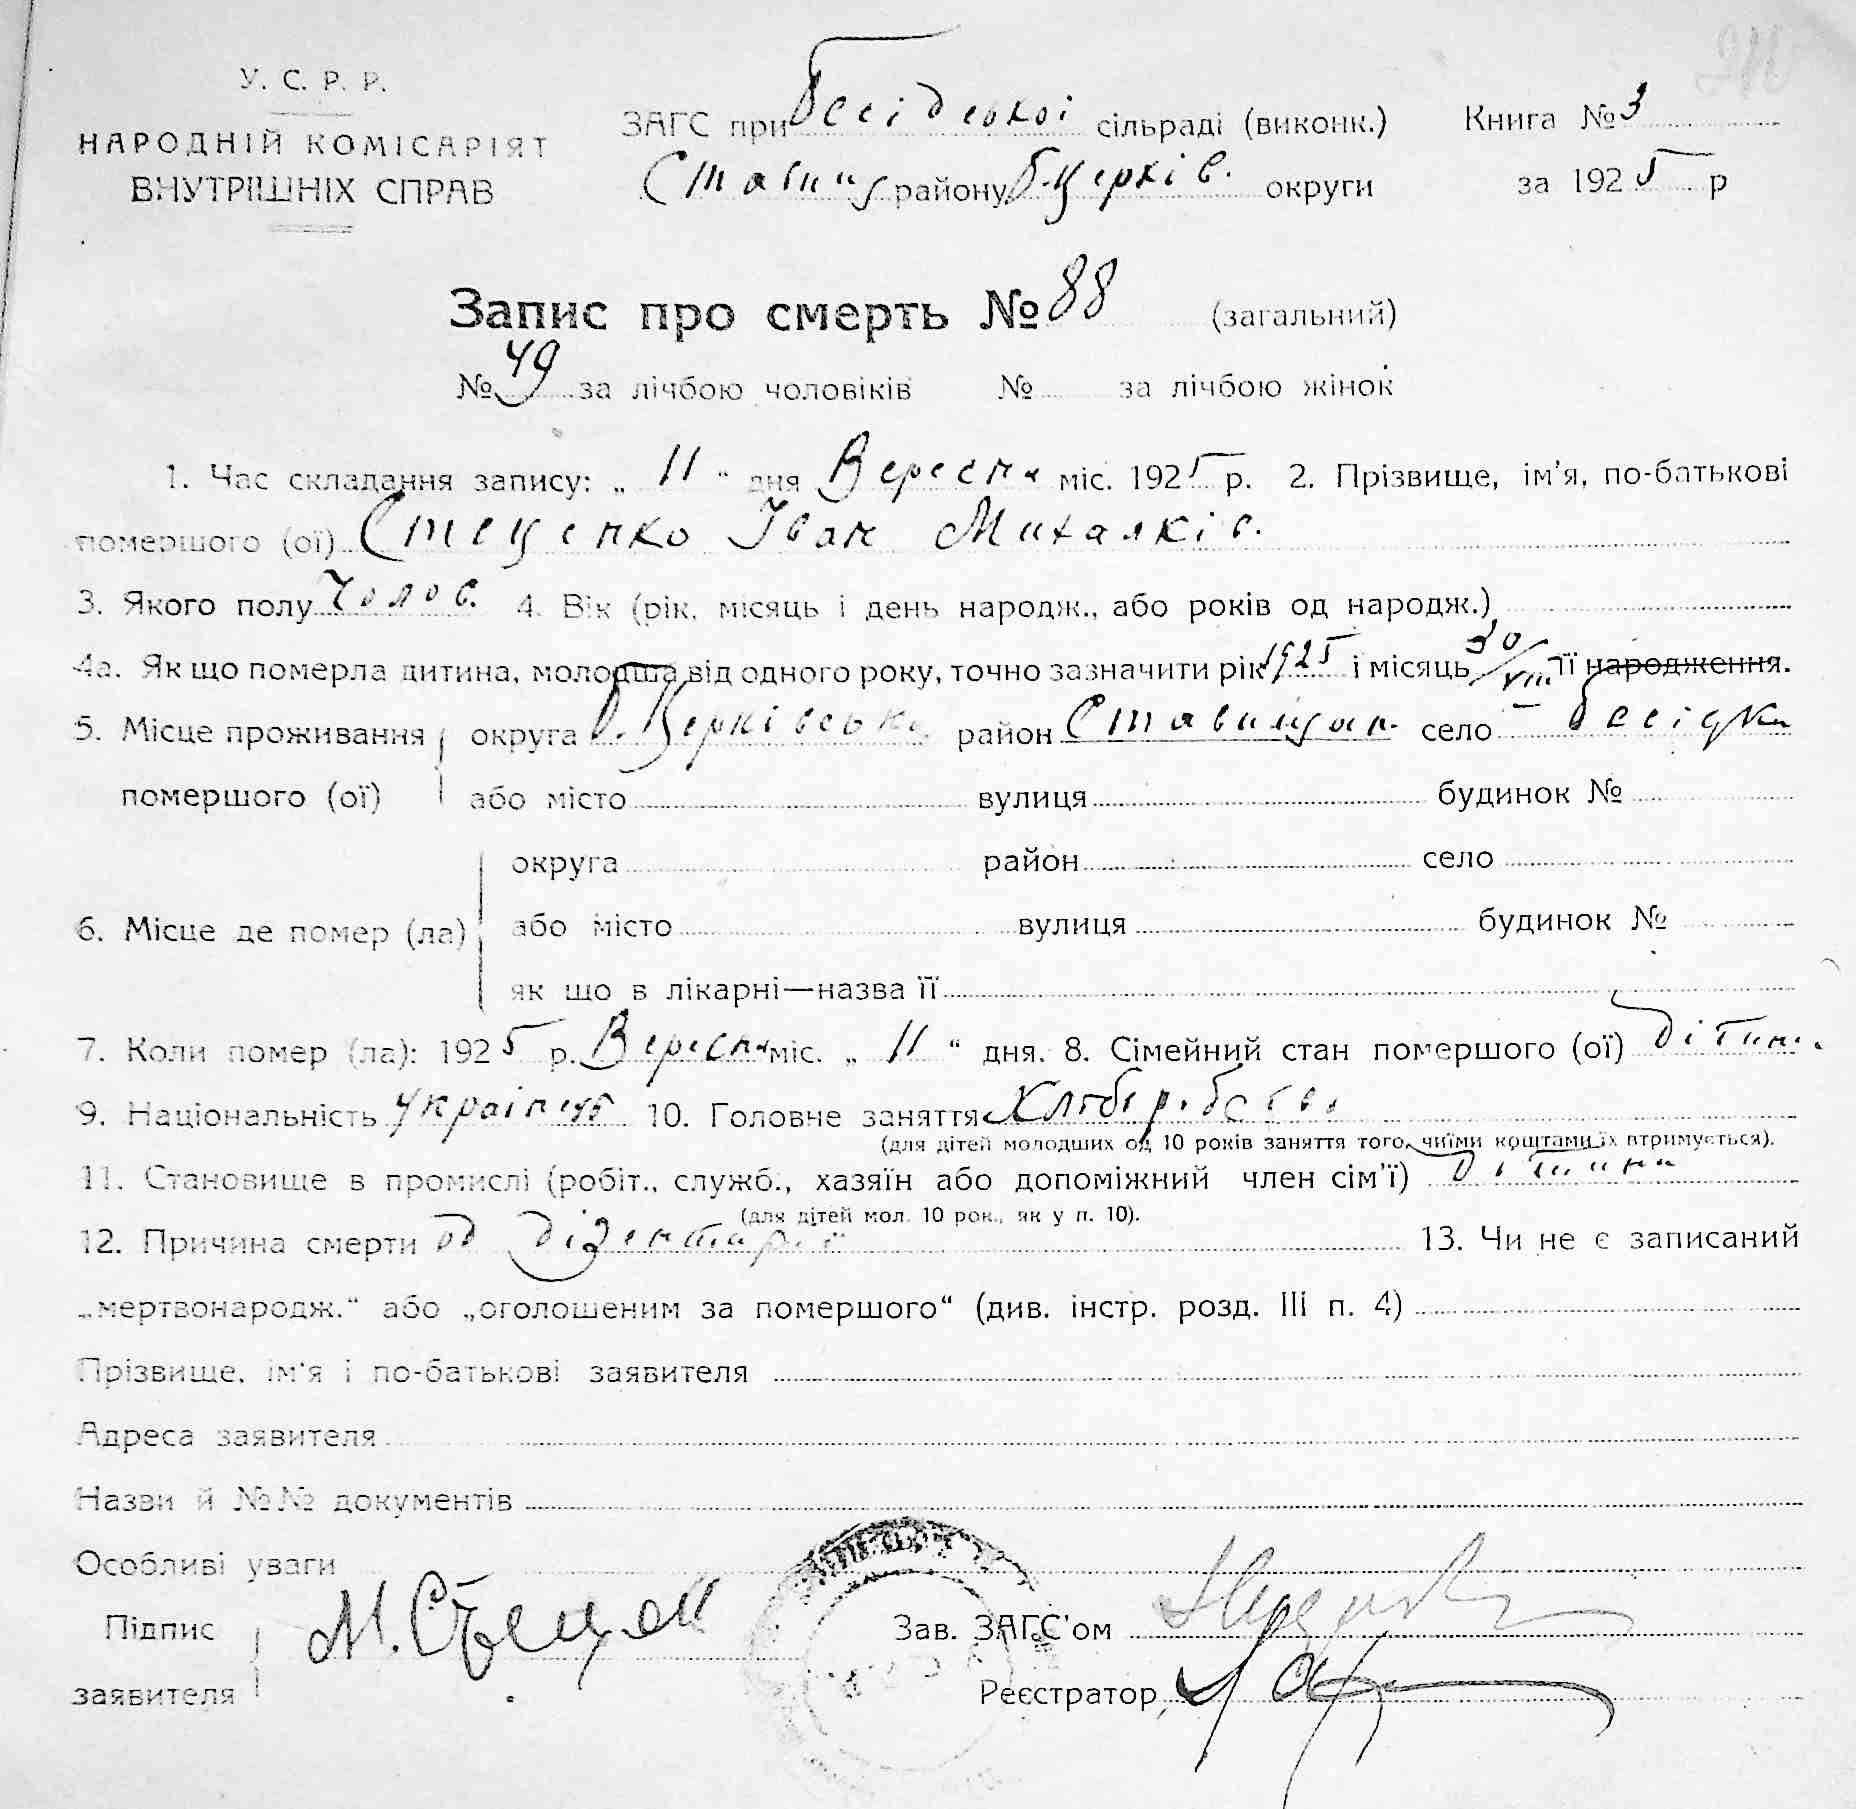 У. С. Р. Р.
НАРОДНІЙ КОМІСАРІЯТ
ВНУТРІШНІХ СПРАВ
ЗАГС при Бесідської сільраді (виконк.) Книга № 3
Ставищ району Б-Церків. округи за 1925 р
Запис про смерть № 88 (загальний)
№ 49 за лічбою чоловіків № за лічбою жінок
1. Час складання запису: „ 11 “ дня Вересня міс. 1925 р. 2. Прізвище, ім'я, по-батькові
помершого (ої) Стеценко Іван Михалків.
3. Якого полу Чолов. 4. Вік (рік, місяць і день народж., або років од народж.)
4а. Як що померла дитина, молодша від одного року, точно зазначити рік 1925 і місяць 30/VIII її народження.
5. Місце проживання помершого (ої) округа Б. Церківська район Ставищан. село Бесідка
або місто вулиця будинок №
6. Місце де помер (ла) округа район село
або місто вулиця будинок №
як що в лікарні—назва її
7. Коли помер (ла): 1925 р. Вересня міс. „ 11 “ дня. 8. Сімейний стан помершого (ої) Дітина
9. Національність Українець 10. Головне заняття Хліборобство
(для дітей молодших од 10 років заняття того, чиїми коштами їх втримується).
11. Становище в промислі (робіт., служб., хазяїн або допоміжний член сім'ї) Дітина
(для дітей мол. 10 рок., як у п. 10).
12. Причина смерти од дізентарії 13. Чи не є записаний
„мертвонародж.“ або „оголошеним за помершого“ (див. інстр. розд. III п. 4)
Прізвище, ім'я і по-батькові заявителя
Адреса заявителя
Назви й №№ документів
Особливі уваги
Підпис заявителя М. Стецен
Зав. ЗАГС'ом
Реєстратор